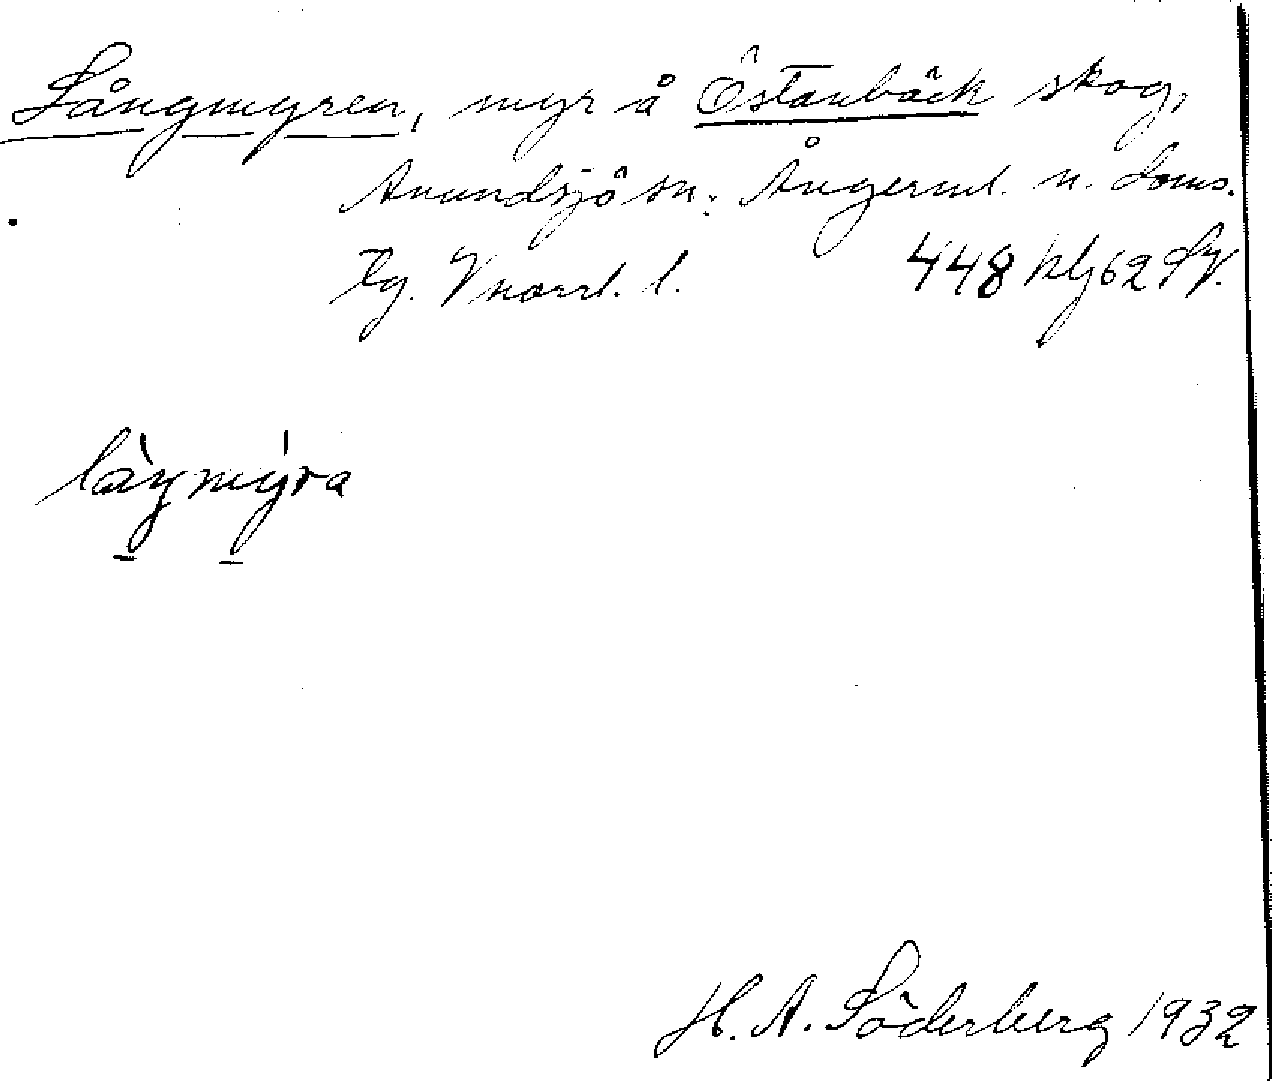 Långmyren, myr å Östanbäck skog,
Anundsjö sn. Ångerml. n. Doms.
Tg. Vnorrl. l. 448 hlj 62 Sv.
låŋmyra
H. A. Söderberg 1932